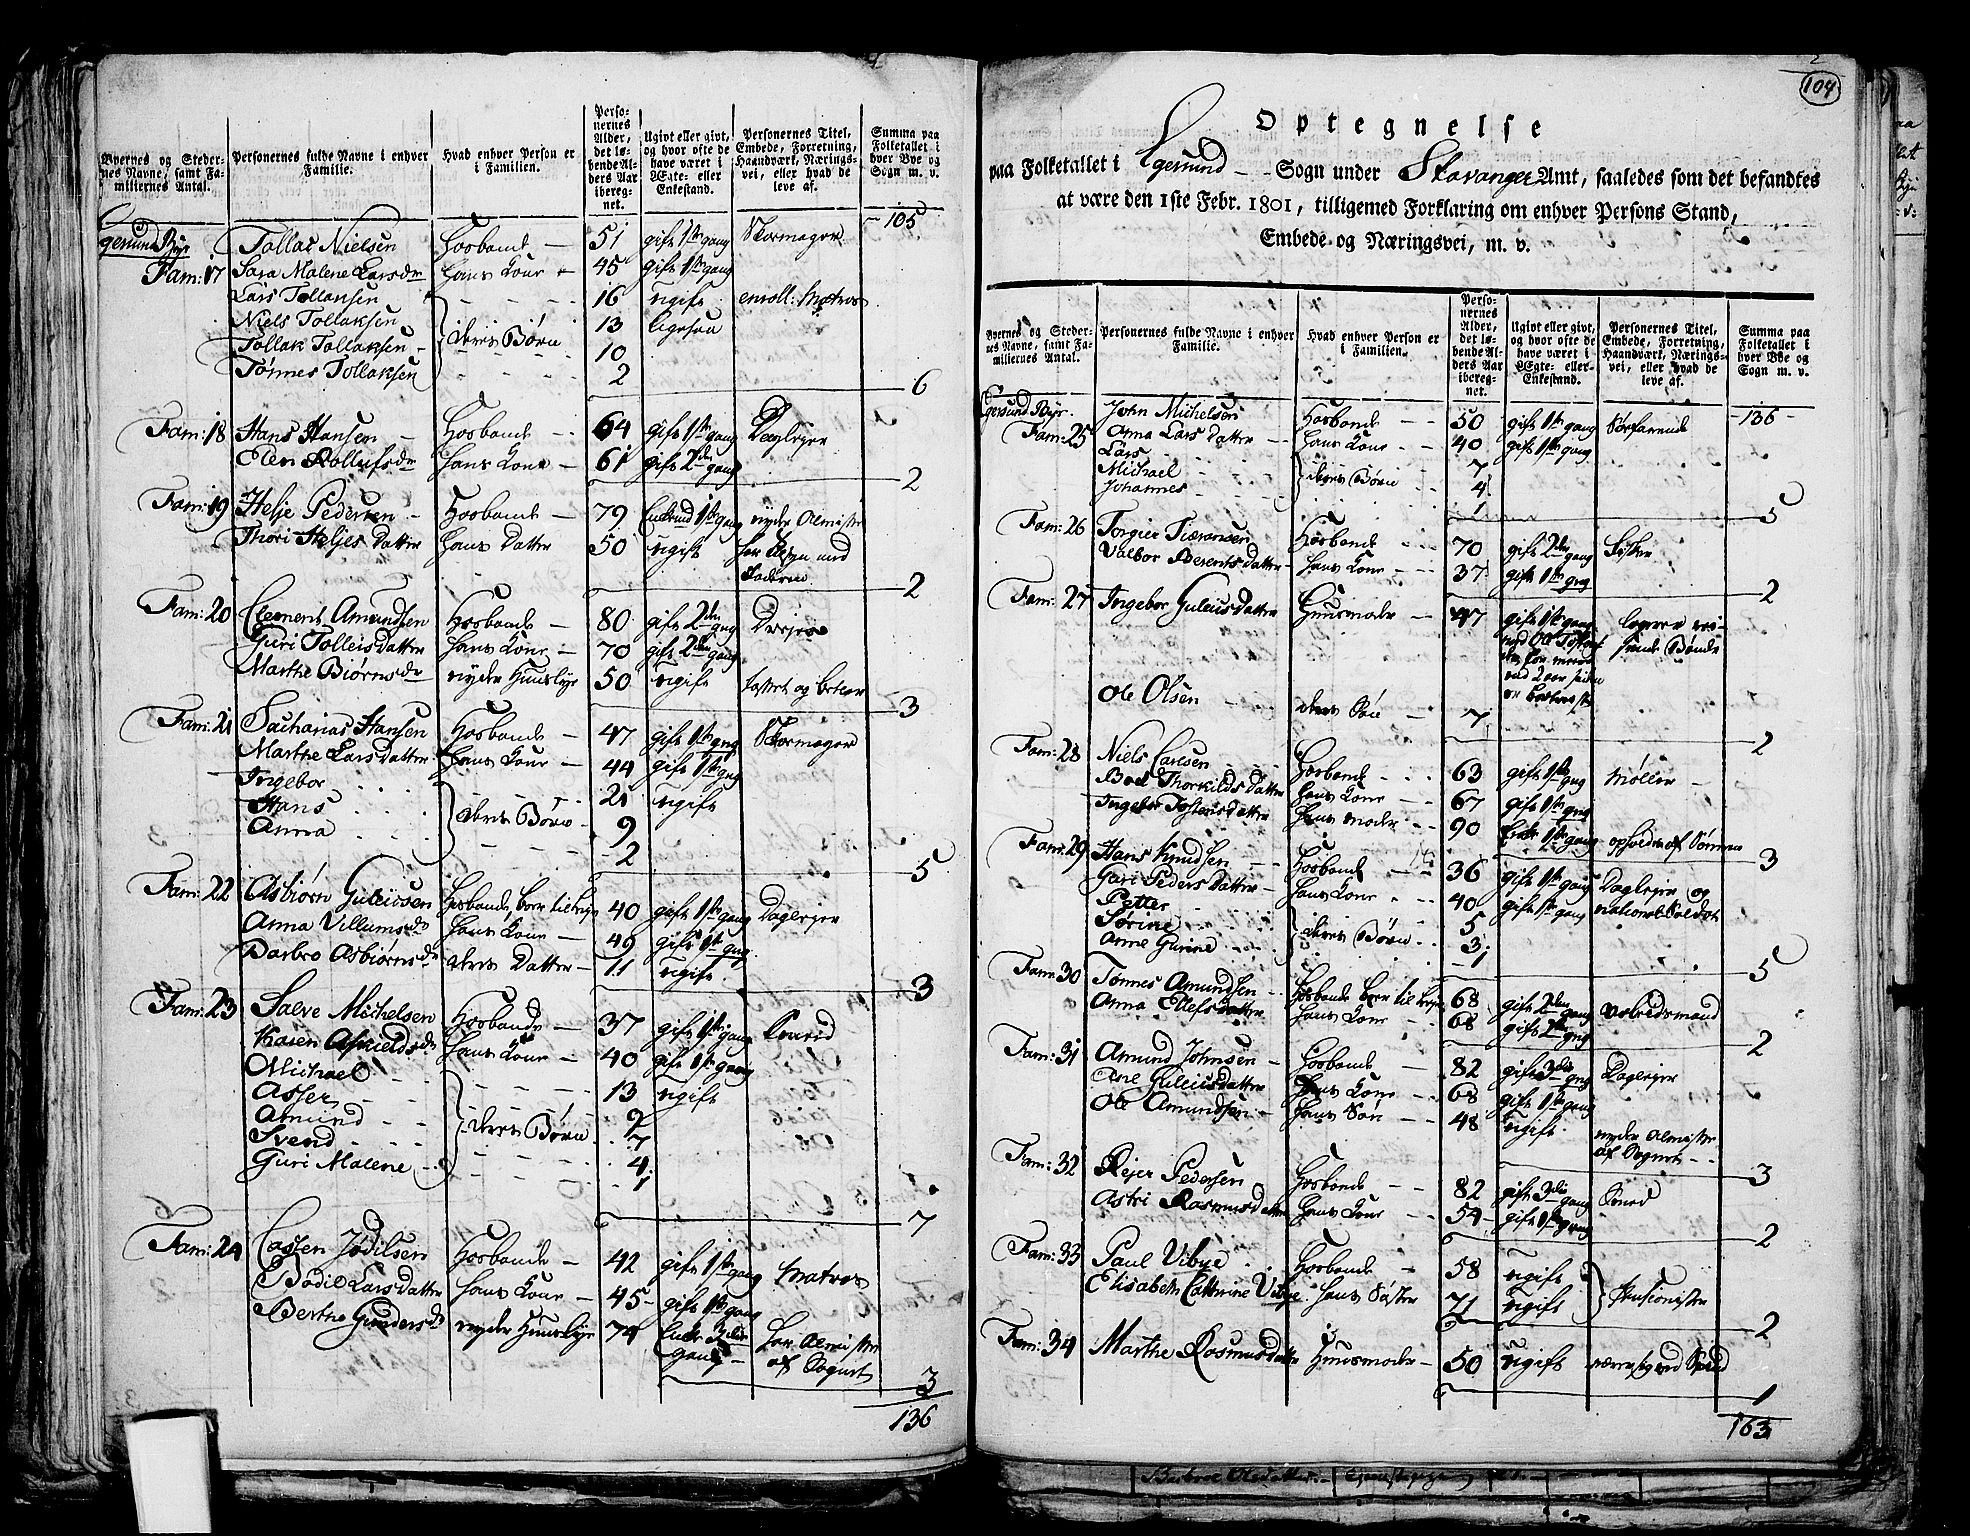 Byernes og Steder- nes Navne, samt Fa- miliernes Antal. | Personernes fulde Navne i enhver Familie. | Hvad enhver Person er i Familien. | Perso- nernes Alder, det lø- bende Al- ders Aar ibereg- net. | Ugivt eller givt, og hvor ofte de have været i Ægte- eller Enkestand. | Personernes Titel, Embede, Forretning, Haandværk, Nærings- vei, eller hvad de leve af. | Summa paa Folketallet i hver Bye og Sogn m. v.
Egersund Bye Tollac Nielsen Hosbonde 51 gift 1ste gang Skomager 105
Fam: 17 Sara Malene Larsdr hans Kone 45 gift 1ste gang
Lars Tollaksen 16 ugift enroll: Matros
Niels Tollaksen deres Børn 13 ligesaa
Tollak Tollaksen 10
Tørnes Tollaksen 2
6
Fam: 18 Hans Hansen Hosbonde 64 gift 1ste gang Daglejer
Elen Rollufsdr hans Kone 61 gift 2den gang
2
Fam: 19 Helje Pedersen Hosbonde 79 Enkemd 1ste gang nyder Almisse
Thori Heljes Datter hans Datter 50 ugift
Faderen
2
Fam: 20 Clement Amundsen Hosbonde 80 gift 2den gng Drejer
Guri Tolleisdatter hans Kone 70 gift 2den gang
Marthe Biørnsdr nyder Huuslye 50 ugift og betler
3
Fam: 21 Sacharias Hansen Hosbonde 47 gift 1ste gng Skomager
Marthe Larsdatter hans Kone 44 gift 1ste gng
Ingebor 21 ugift
Hans deres Børn 9
Anna 2
5
Fam: 22 Asbiørn Guleiosen Hosbonde, 40 gift 1ste gang Daglejer
Anna Villumsdr hans Kone 49 gift 1ste gng
Barbro Asbiørnsdr deres Datter 11 ugift
3
Fam: 23 Salve Michelsen Hosbonde 37 gift 1ste gang
Karen Askieldsdr hans Kone 40 gift 1ste gang
Michael 13 ugift
Asser
Amund deres Børn 9
Svend 7
Guri Malene 4
1
7
Fam: 24 Casten Jødilsen Hosbonde 42 gift 1ste gang Matros
Bodil Larsdatter hans Kone 45 gift 1ste gang
Berthe Gundersdr nyder Huuslye 74 Enke 3die gang har Almisse
af Sognet
3
136
104
Optegnelse
paa Folketallet i Egersund Sogn under Stavanger Amt, saaledes som det befandtes
at være den 1ste Febr. 1801, tilligemed Forklaring om enhver Persons Stand,
Embede og Næringsvei, m. v.
Byernes og Steder- nes Navne, samt Fa- miliernes Antal. | Personernes fulde Navne i enhver Familie. | Hvad enhver Person er i Familien. | Perso- nernes Alder, det lø- bende Al- ders Aar ibereg- net. | Ugivt eller givt, og hvor ofte de have været i Ægte- eller Enkestand. | Personernes Titel, Embede, Forretning, Haandværk, Nærings- vei, eller hvad de leve af. | Summa paa Folketallet i hver Bye og Sogn m. v.
Egersund Bye. John Michelsen Hosbonde 50 gift 1ste gang Søefarende 136
Fam: 25 Anna Lars Datter hans Kone 40 gift 1ste gang
Lars 7
Michael deres Børn 4
Johannes 1
5
Fam: 26 Torgier Tiæransen Hosbonde 70 gift 2den gang Fisker
Valbor Berentsdatter hans Kone 37 gift 1ste gng
2
Fam: 27 Ingebor Guleiisdatter Huusmoder 47 gift 1ste gang
Ole Olsen deres Søn 7
2
Fam: 28 Niels Carlsen Hosbonde 63 gift 1ste gng Møller
Boel Thorkildsdatter hans Kone 67 gift 1ste gng
Ingebor Tostensdatter hans Moder 90 Enke 1ste gang opholdes af Sønnen
3
Fam: 29 Hans Knudsen Hosbonde 36 gift 1ste gang Daglejer og
Guri Peders Datter hans Kone 40 gift 1ste gang national Soldat
Petter 5
Sørine deres Børn 3
Anne Gurine 1
5
Fam: 30 Tønnes Amundsen Hosbonde 68 gift 2den gang Arbeidsmand
Anna Ellefsdatter hans Kone 68 gift 2den gng
2
Fam: 31 Amund Johnsen Hosbonde 82 gift 3die gng Daglejer
Ane Guleiisdatter hans Kone 68 gift 1ste gang
Ole Amundsen hans Søn 48 ugift nyder Almisse
af Sognet
3
Fam: 32 Rejer Pedersen Hosbonde 82 gift 3die gang
Astri Rasmusdatter hans Kone 54 gift 1ste gang
2
Fam: 33 Paul Vibye Hosbonde 58 ugift Pensionister
Elisabeth Cathrine Vibye hans Søster 71 ugift
2
Fam: 34 Marthe Rasmusdatter Huusmoder 50 ugift
1
163